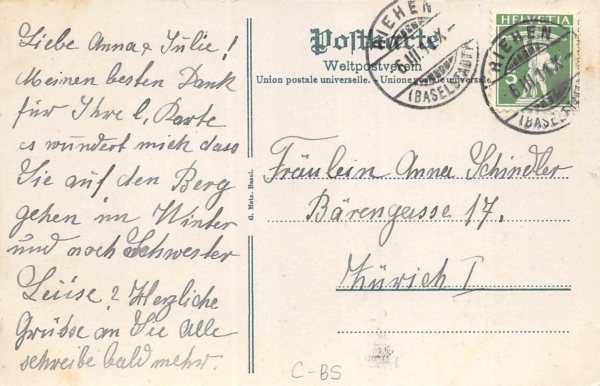 Liebe Anna & Julie!
Meinen besten Dank
für Ihre l. Karte
es wundert mich dass
Sie auf den Berg
gehen im Winter
und noch Schwester
Luise? Herzliche
Grüsse an Sie Alle
schreibe bald mehr.
Postkarte
Weltpostverein
Union postale universelle. - Unione postale universale
G. Metz, Basel.
HELVETIA
5
RIEHEN
(BASELSTADT)
RIEHEN
(BASELSTADT)
Fräulein Anna Schindler
Bärengasse 17.
Zürich I
C-BS